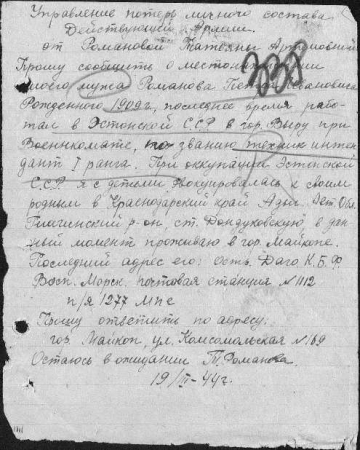 Управление потерь личного состава
Действующей Армии.
от Романовой Татьяны
Прошу сообщить о местонахождении
моего мужа Романова Петра Ивановича
Рожденного 1909г, последнее время рабо-
тал в Эстонской ССР в гор. Выру при
Военкомате, по званию техник интен
дант I ранга. При оккупации Эстонской
ССР я с детьми эвакуировалась к своим
родным в Краснодарский край Адыг. Авт. Обл.
Гиагинский р-он. ст. Дондуковскую в дан
ный момент проживаю в гор. Майкопе.
Последний адрес его: Даго К.Б.Ф.
Воен. Морск. почтовая станция №1112
п/я 1277
Прошу ответить по адресу.
гор. Майкоп, ул. Комсомольская №169
Остаюсь в ожидании Т. Романова.
19/II-44г.